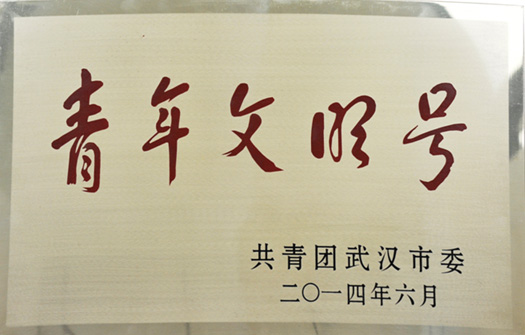 青年文明号
共青团武汉市委
二〇一四年六月